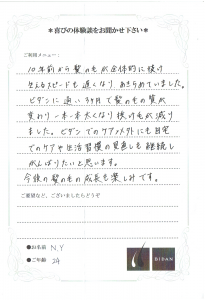 ＊喜びの体験談をお聞かせ下さい＊
ご利用メニュー：
10年前から髪の毛が全体的に抜け
生えるスピードも遅くなり、あきらめていました。
ビダンに通い3ヶ月で髪の毛の質が
変わり一本一本太くなり抜け毛が減り
ました。ビダンでのケアメイン、にも自宅
でのケアや生活習慣の見直しも継続し
がんばりたいと思います。
今後の髪の毛の成長も楽しみです。
ご要望など、ございましたらどうぞ
●お名前 N.Y
●ご年齢 24
BIDAN